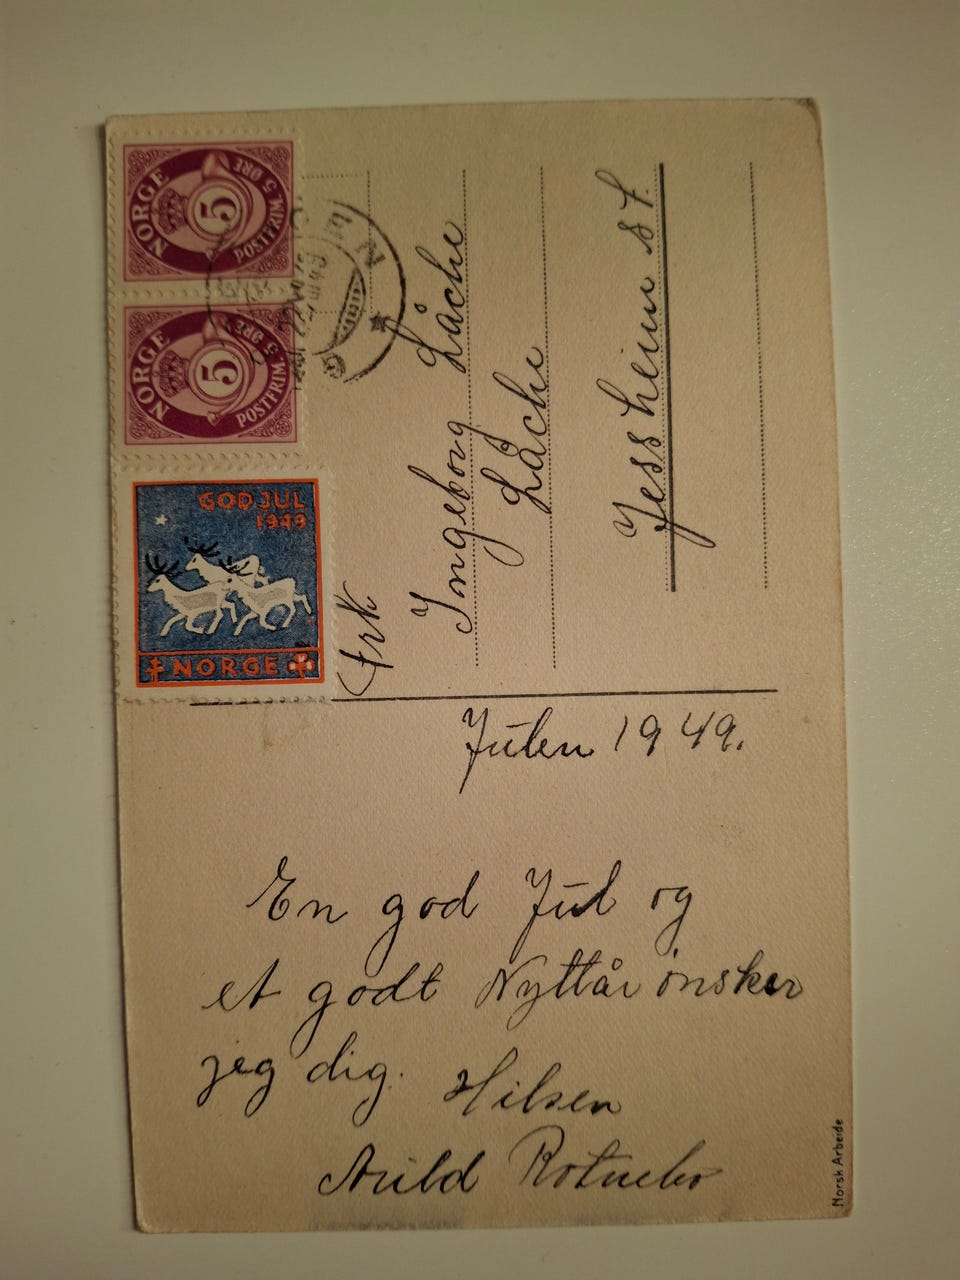 NORGE
5
POSTFRIM. 5 ØRE
NORGE
5
POSTFRIM. 5 ØRE
GOD JUL
1949
NORGE
Frk
Ingeborg Låche
Låche
Jessheim st.
Julen 1949.
En god Jul og
et godt Nyttår ønsker
jeg dig. Hilsen
Arild Rotnebo
Norsk Arbeide